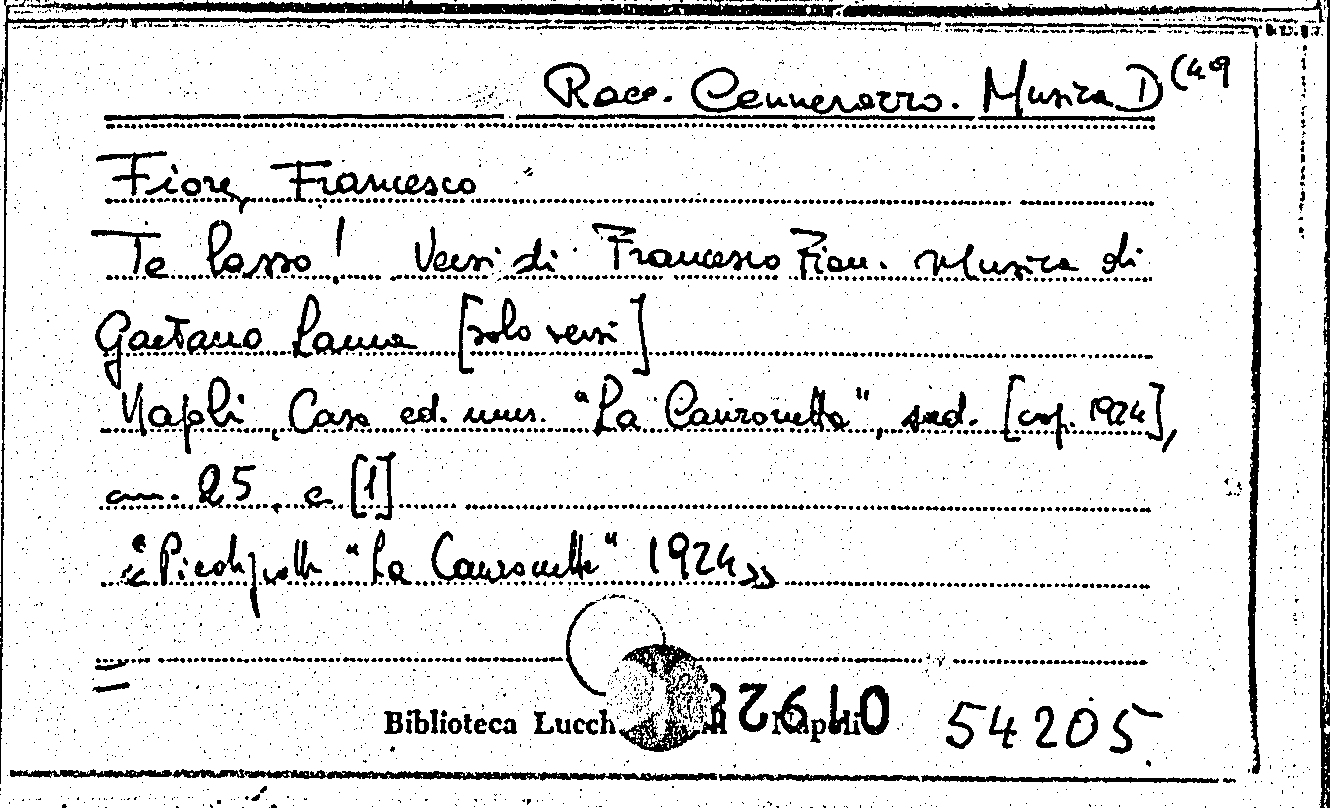 Racc. Cennerazzo. Musica D (49
Fiore, Francesco
Te lasso! Versi di Francesco Fiore. Musica di
Gaetano Lama [solo versi]
Napoli, Casa ed. mus. "La Canzonetta", s.a.d. [cop. 1924],
an. 25, c. [1]
«Piedigrotta "La Canzonetta" 1924»
Biblioteca Lucch Napoli 54205